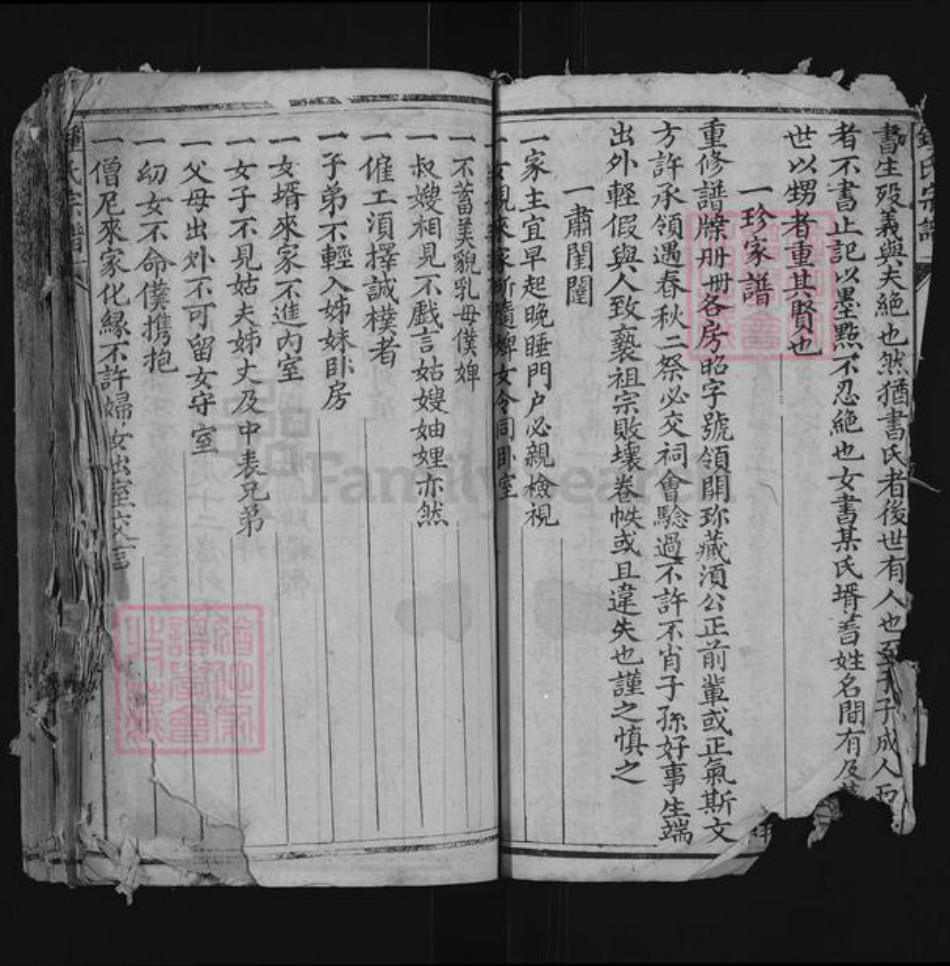 書生殁義與夫絶也然猶書氏者後世有人也至于子成人而
者不書止記以墨點不忍絶也女書某氏壻著姓名間有及其
世以甥者重其賢也
一珍家譜
重修譜牒册册各房昭字號領開珎藏湏公正前輩或正氣斯文
方許承領遇春秋二祭必交祠會驗過不許不肖子孫好事生端
出外輕假與人致褻祖宗敗壞卷帙或且違失也謹之慎之
一肅閨闥
一家主宜早起晚睡門户必親檢視
一女親來家所隨婢女令同卧室
一不蓄美貌乳母僕婢
一叔嫂相見不戲言姑嫂妯娌亦然
一傭工湏擇誠樸者
一子弟不輕入姊妹卧房
一女壻來家不進内室
一女子不見姑夫姊丈及中表兄弟
一父母出外不可留女守室
一幼女不命僕携抱
一僧尼來家化緣不許婦女出室交言
鍾氏宗譜
FamilySearch